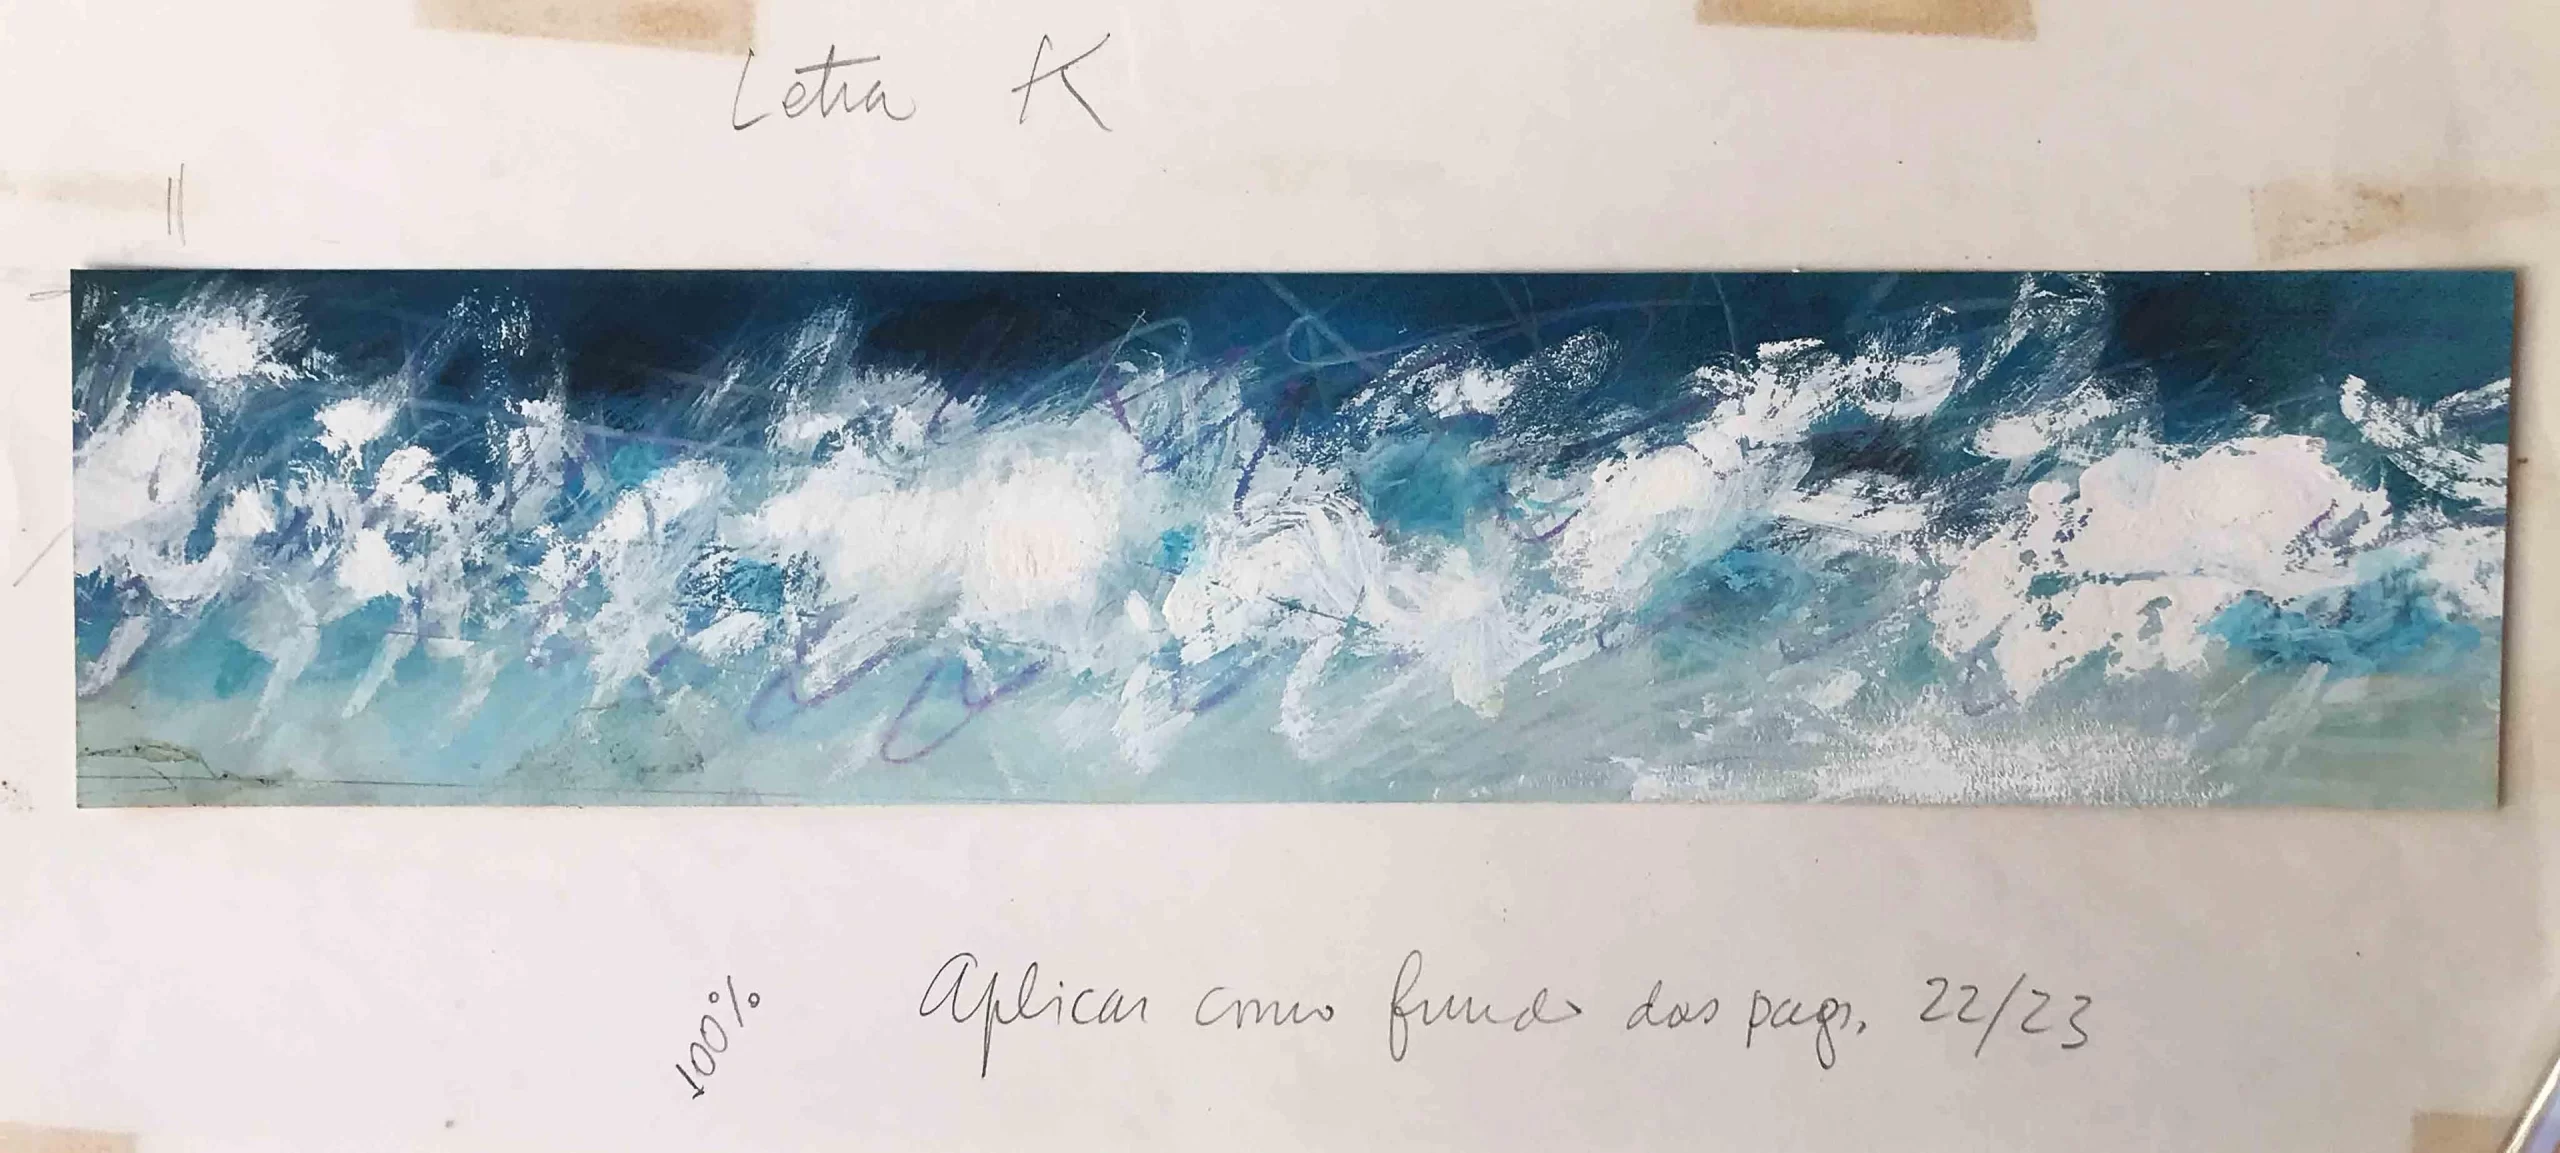 Letra K
100%
Aplicar como fundo das pags. 22/23